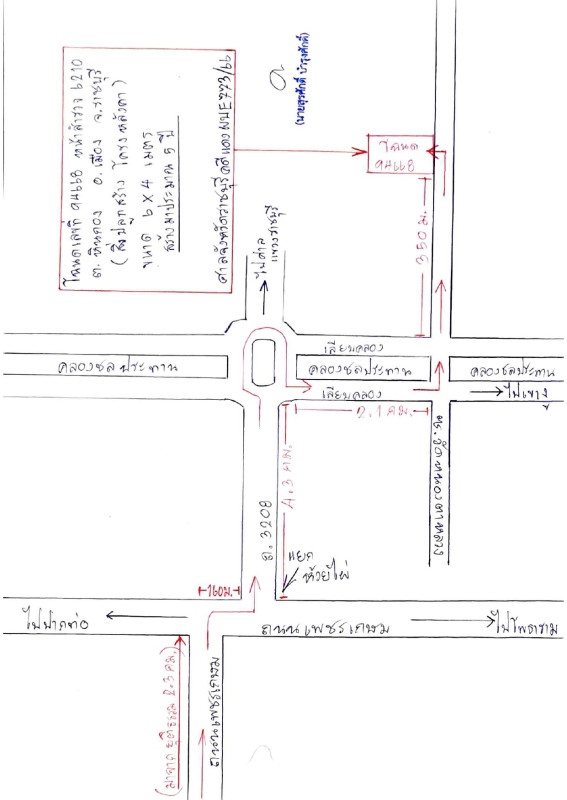 โฉนดเลขที่ 94668 หน้าสำรวจ 6210
ต. หินกอง อ. เมือง จ. ราชบุรี
(สิ่งปลูกสร้าง โครงหลังคา)
ขนาด 6 x 4 เมตร
สร้างมาประมาณ 5 ปี
ศาลจังหวัดราชบุรีคดีแดง ผบE773/66
(นายสุรศักดิ์ บำรุงศักดิ์)
โฉนด
94668
350 ม.
ไปศาล
แขวงราชบุรี
เลียบคลอง
คลองชลประทาน
คลองชลประทาน
คลองชลประทาน
เลียบคลอง
ไปเขางู
2.1 กม.
4.3 กม.
ถ. 3208
แยก
ห้วยไผ่
160ม.
ไปปากท่อ
ถนนเพชรเกษม
ไปโพธาราม
ถนนเพชรเกษม
2.3 กม.)